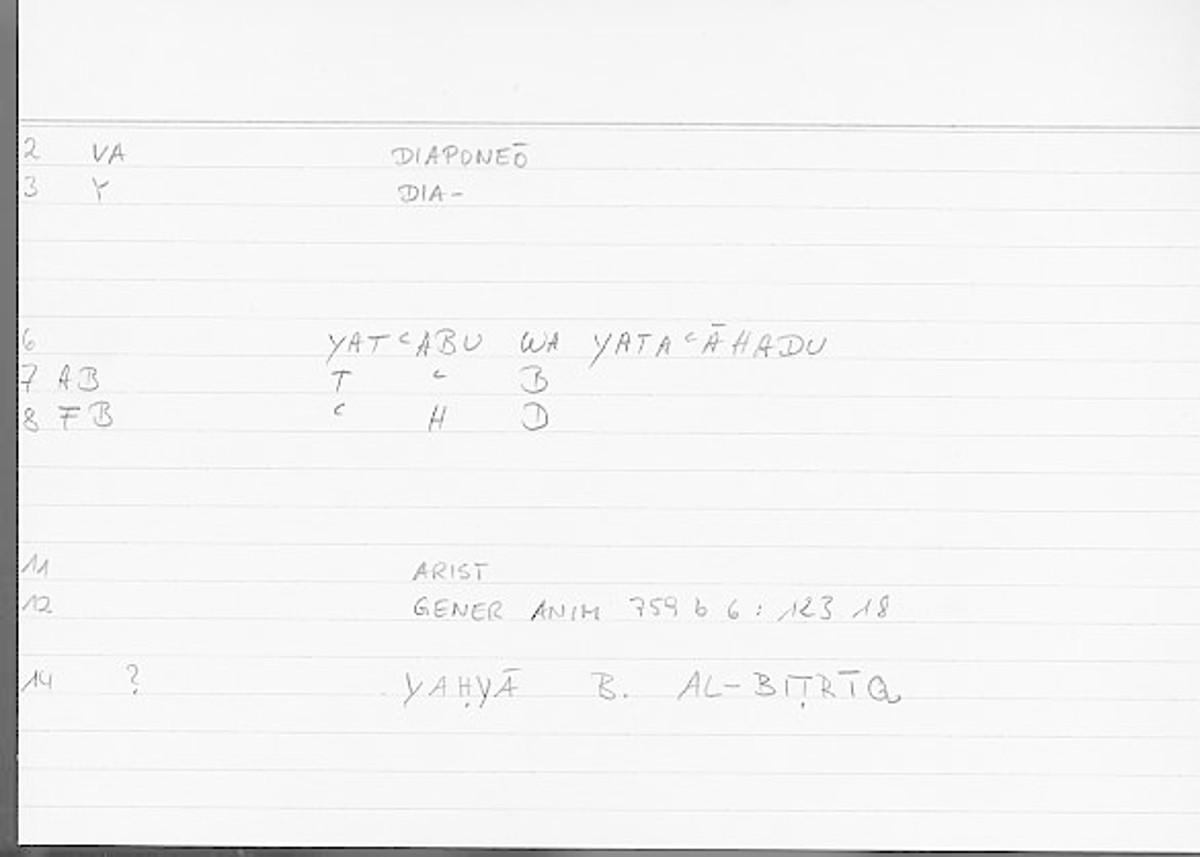 2 VA DIAPONEŌ
3 Y DIA-
6 YATʿABU WA YATAʿĀHADU
7 AB T ʿ B
8 FB ʿ H D
11 ARIST
12 GENER ANIM 759 b 6 : 123 18
14 ? YAḤYĀ B. AL-BIṬRĪQ